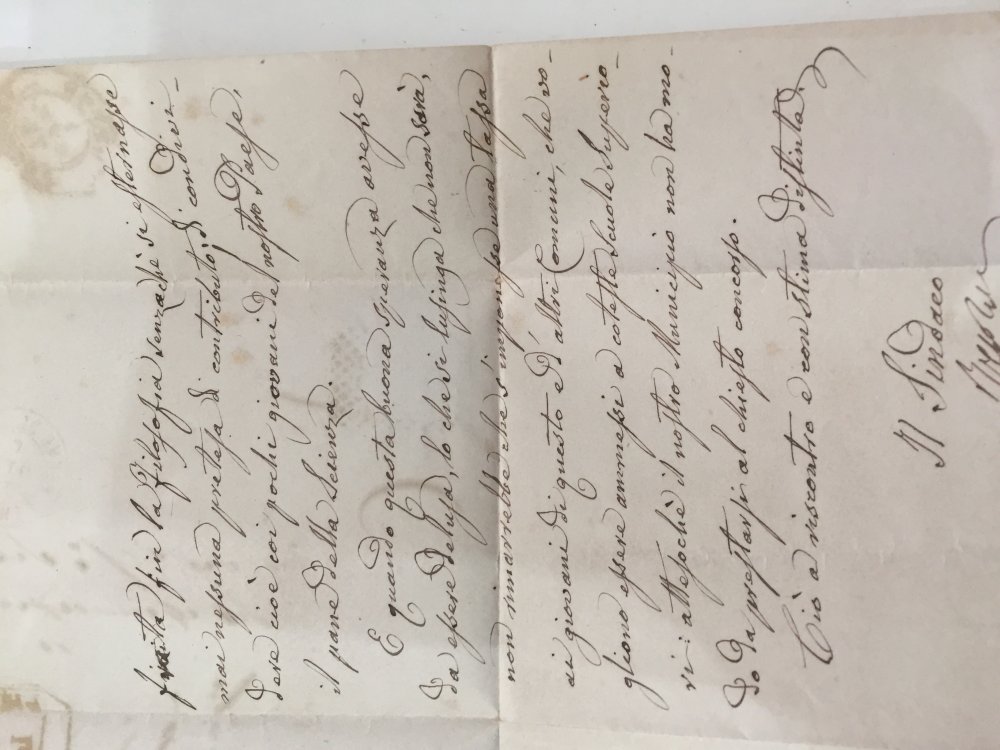 finita fin la filosofia senzachè si esternasse
mai nessuna pretesa di contributo: di condivi-
dere cioè coi pochi giovani del nostro Paese,
il pane della Scienza.
E quando questa buona speranza avesse
da essere delusa, lo che si lusinga che non sarà,
non rimarrebbe che s'imponesse una tassa
ai giovani di questo e d'altri Comuni, che vo-
gliono essere ammessi a coteste Scuole Superio-
ri: attesochè il nostro Municipio non ha mo-
do da prestarsi al chiesto concorso.
Ciò a riscontro e con stima distinta.
Il Sindaco